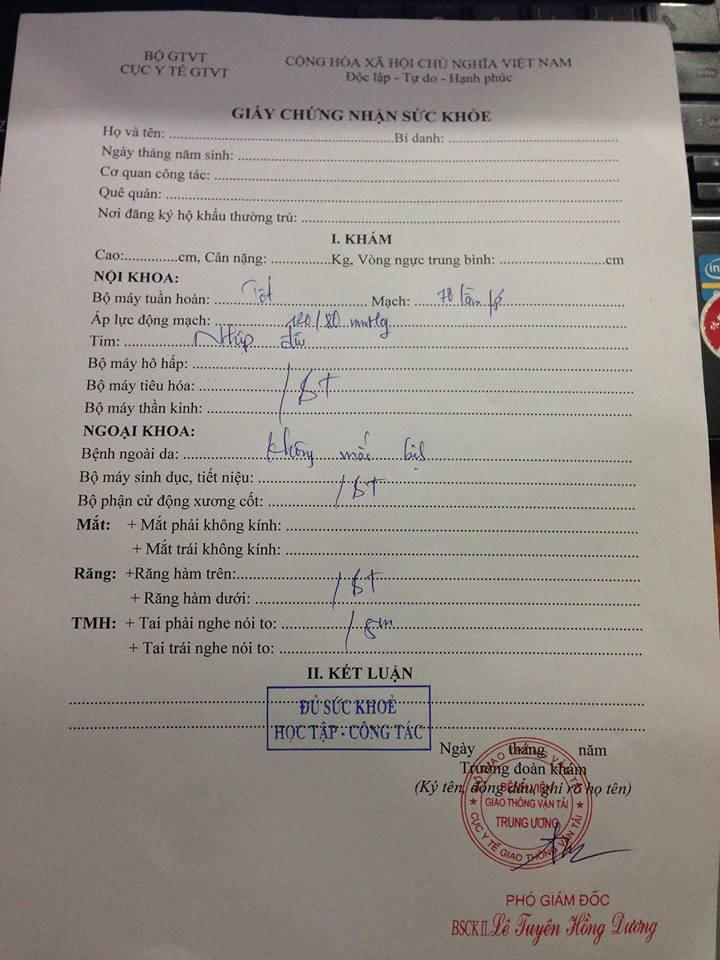 BỘ GTVT
CỤC Y TẾ GTVT
CỘNG HÒA XÃ HỘI CHỦ NGHĨA VIỆT NAM
Độc lập - Tự do - Hạnh phúc
GIẤY CHỨNG NHẬN SỨC KHỎE
Họ và tên: Bí danh:
Ngày tháng năm sinh:
Cơ quan công tác:
Quê quán:
Nơi đăng ký hộ khẩu thường trú:
I. KHÁM
Cao: cm, Cân nặng: Kg, Vòng ngực trung bình: cm
NỘI KHOA:
Bộ máy tuần hoàn: Tốt Mạch: 78 lần/
Áp lực động mạch: 120/80 mmHg
Tim: Nhịp đều
Bộ máy hô hấp:
Bộ máy tiêu hóa: BT
Bộ máy thần kinh:
NGOẠI KHOA:
Bệnh ngoài da: Không mắc
Bộ máy sinh dục, tiết niệu: BT
Bộ phận cử động xương cốt:
Mắt: + Mắt phải không kính:
+ Mắt trái không kính:
Răng: +Răng hàm trên: BT
+ Răng hàm dưới:
TMH: + Tai phải nghe nói to: 5m
+ Tai trái nghe nói to:
II. KẾT LUẬN
ĐỦ SỨC KHOẺ
HỌC TẬP - CÔNG TÁC
Ngày tháng năm
Trưởng đoàn khám
(Ký tên, đóng dấu, ghi rõ họ tên)
BỘ GIAO THÔNG VẬN TẢI
BỆNH VIỆN
GIAO THÔNG VẬN TẢI
TRUNG ƯƠNG
CỤC Y TẾ GIAO THÔNG VẬN TẢI
PHÓ GIÁM ĐỐC
BSCK II. Lê Tuyên Hồng Dương
intel